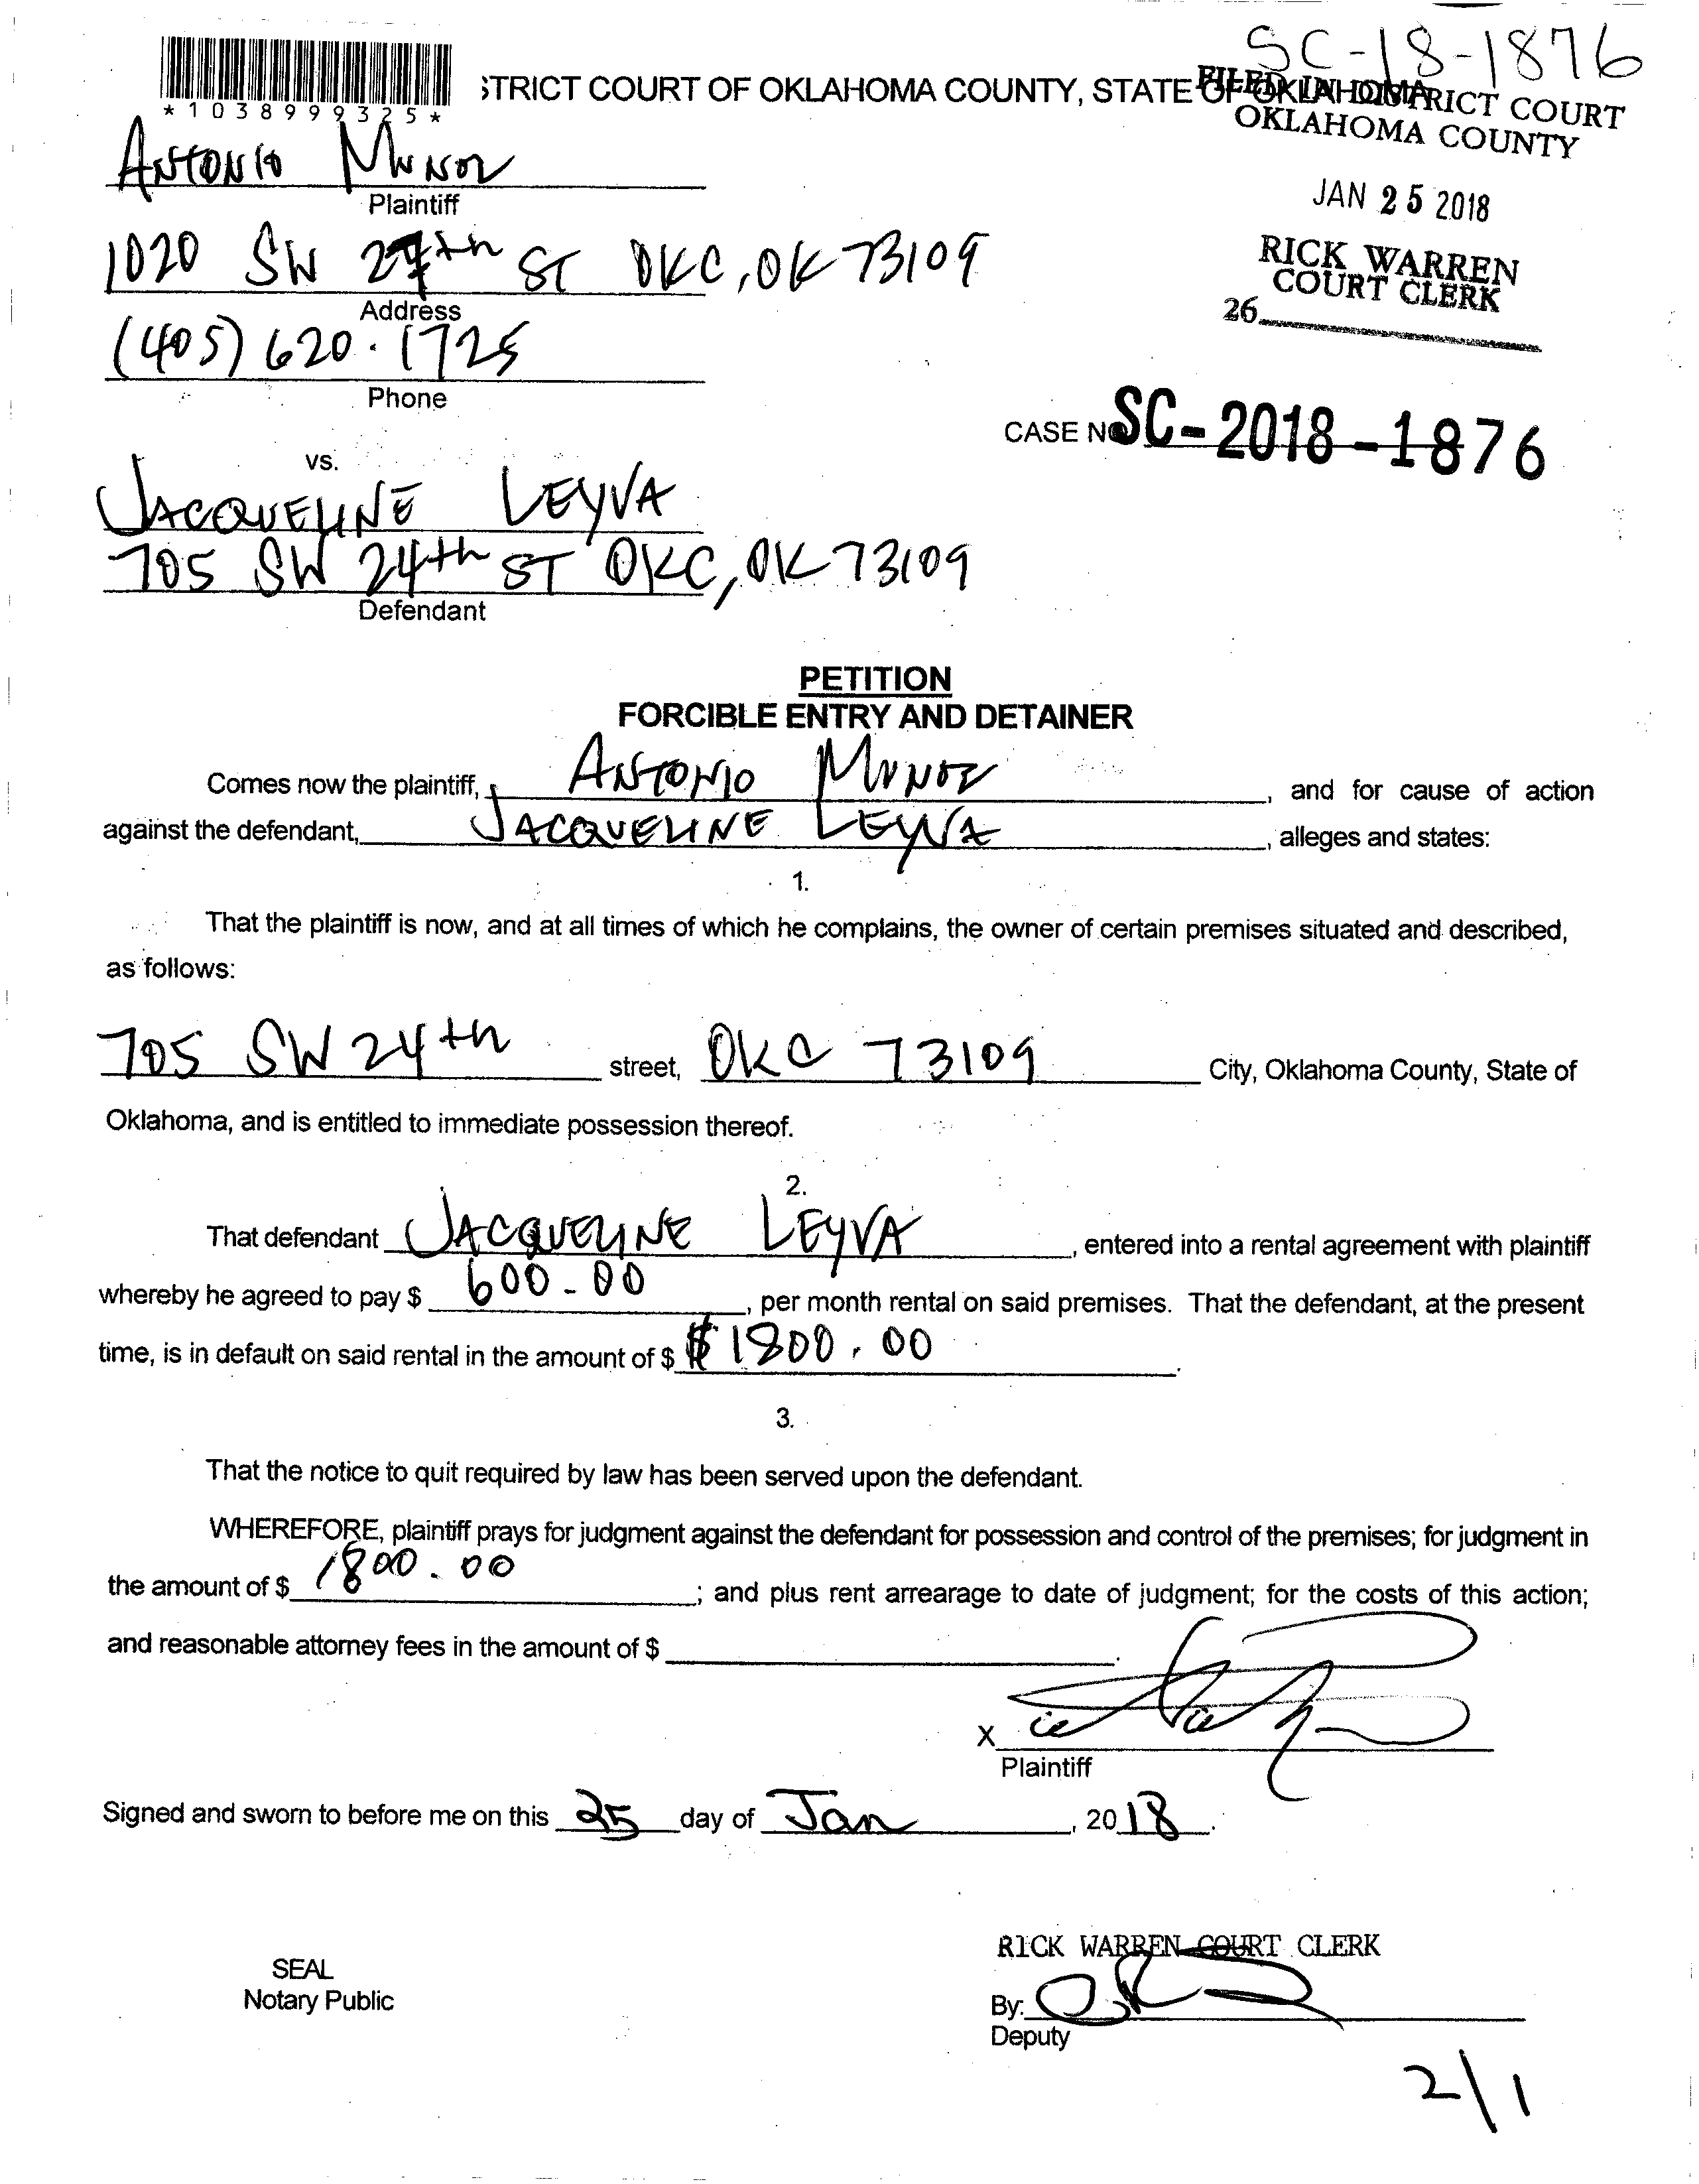 SC-18-1876
*1038999325*
STRICT COURT OF OKLAHOMA COUNTY, STATE OF OKLAHOMA
FILED IN DISTRICT COURT
OKLAHOMA COUNTY
JAN 25 2018
RICK WARREN
COURT CLERK
26
ANTONIO MUNOZ
Plaintiff
1020 SW 27th ST OKC, OK 73109
Address
(405) 620-1725
Phone
CASE NO. SC-2018-1876
vs.
JACQUELINE LEYVA
705 SW 24th ST OKC, OK 73109
Defendant
PETITION
FORCIBLE ENTRY AND DETAINER
Comes now the plaintiff, ANTONIO MUNOZ, and for cause of action
against the defendant, JACQUELINE LEYVA, alleges and states:
1.
That the plaintiff is now, and at all times of which he complains, the owner of certain premises situated and described,
as follows:
705 SW 24th street, OKC 73109 City, Oklahoma County, State of
Oklahoma, and is entitled to immediate possession thereof.
2.
That defendant JACQUELINE LEYVA, entered into a rental agreement with plaintiff
whereby he agreed to pay $ 600-00, per month rental on said premises. That the defendant, at the present
time, is in default on said rental in the amount of $ $1800.00.
3.
That the notice to quit required by law has been served upon the defendant.
WHEREFORE, plaintiff prays for judgment against the defendant for possession and control of the premises; for judgment in
the amount of $ 1800.00; and plus rent arrearage to date of judgment; for the costs of this action;
and reasonable attorney fees in the amount of $.
X
Plaintiff
Signed and sworn to before me on this 25 day of Jan, 2018.
RICK WARREN COURT CLERK
SEAL
Notary Public
By:
Deputy
2/1